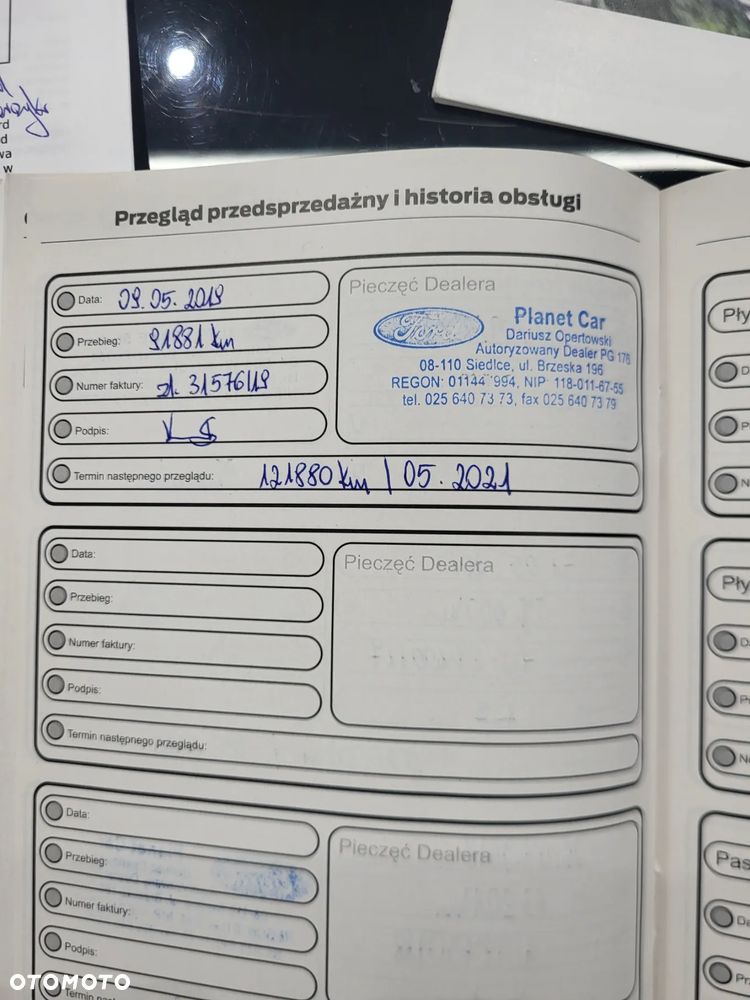 rd
d
wa
w
Przegląd przedsprzedażny i historia obsługi
Data: 09.05.2019
Przebieg: 91881 km
Numer faktury: zl. 31576/19
Podpis:
Termin następnego przeglądu: 121880 km / 05.2021
Pieczęć Dealera
Ford
Planet Car
Dariusz Opertowski
Autoryzowany Dealer PG 176
08-110 Siedlce, ul. Brzeska 196
REGON: 01144 994, NIP: 118-011-67-55
tel. 025 640 73 73, fax 025 640 73 79
Data:
Przebieg:
Numer faktury:
Podpis:
Termin następnego przeglądu:
Pieczęć Dealera
Data:
Przebieg:
Numer faktury:
Podpis:
Termin następnego
Pieczęć Dealera
Pły
D
P
N
Pły
D
P
N
Pas
Da
Pr
OTOMOTO